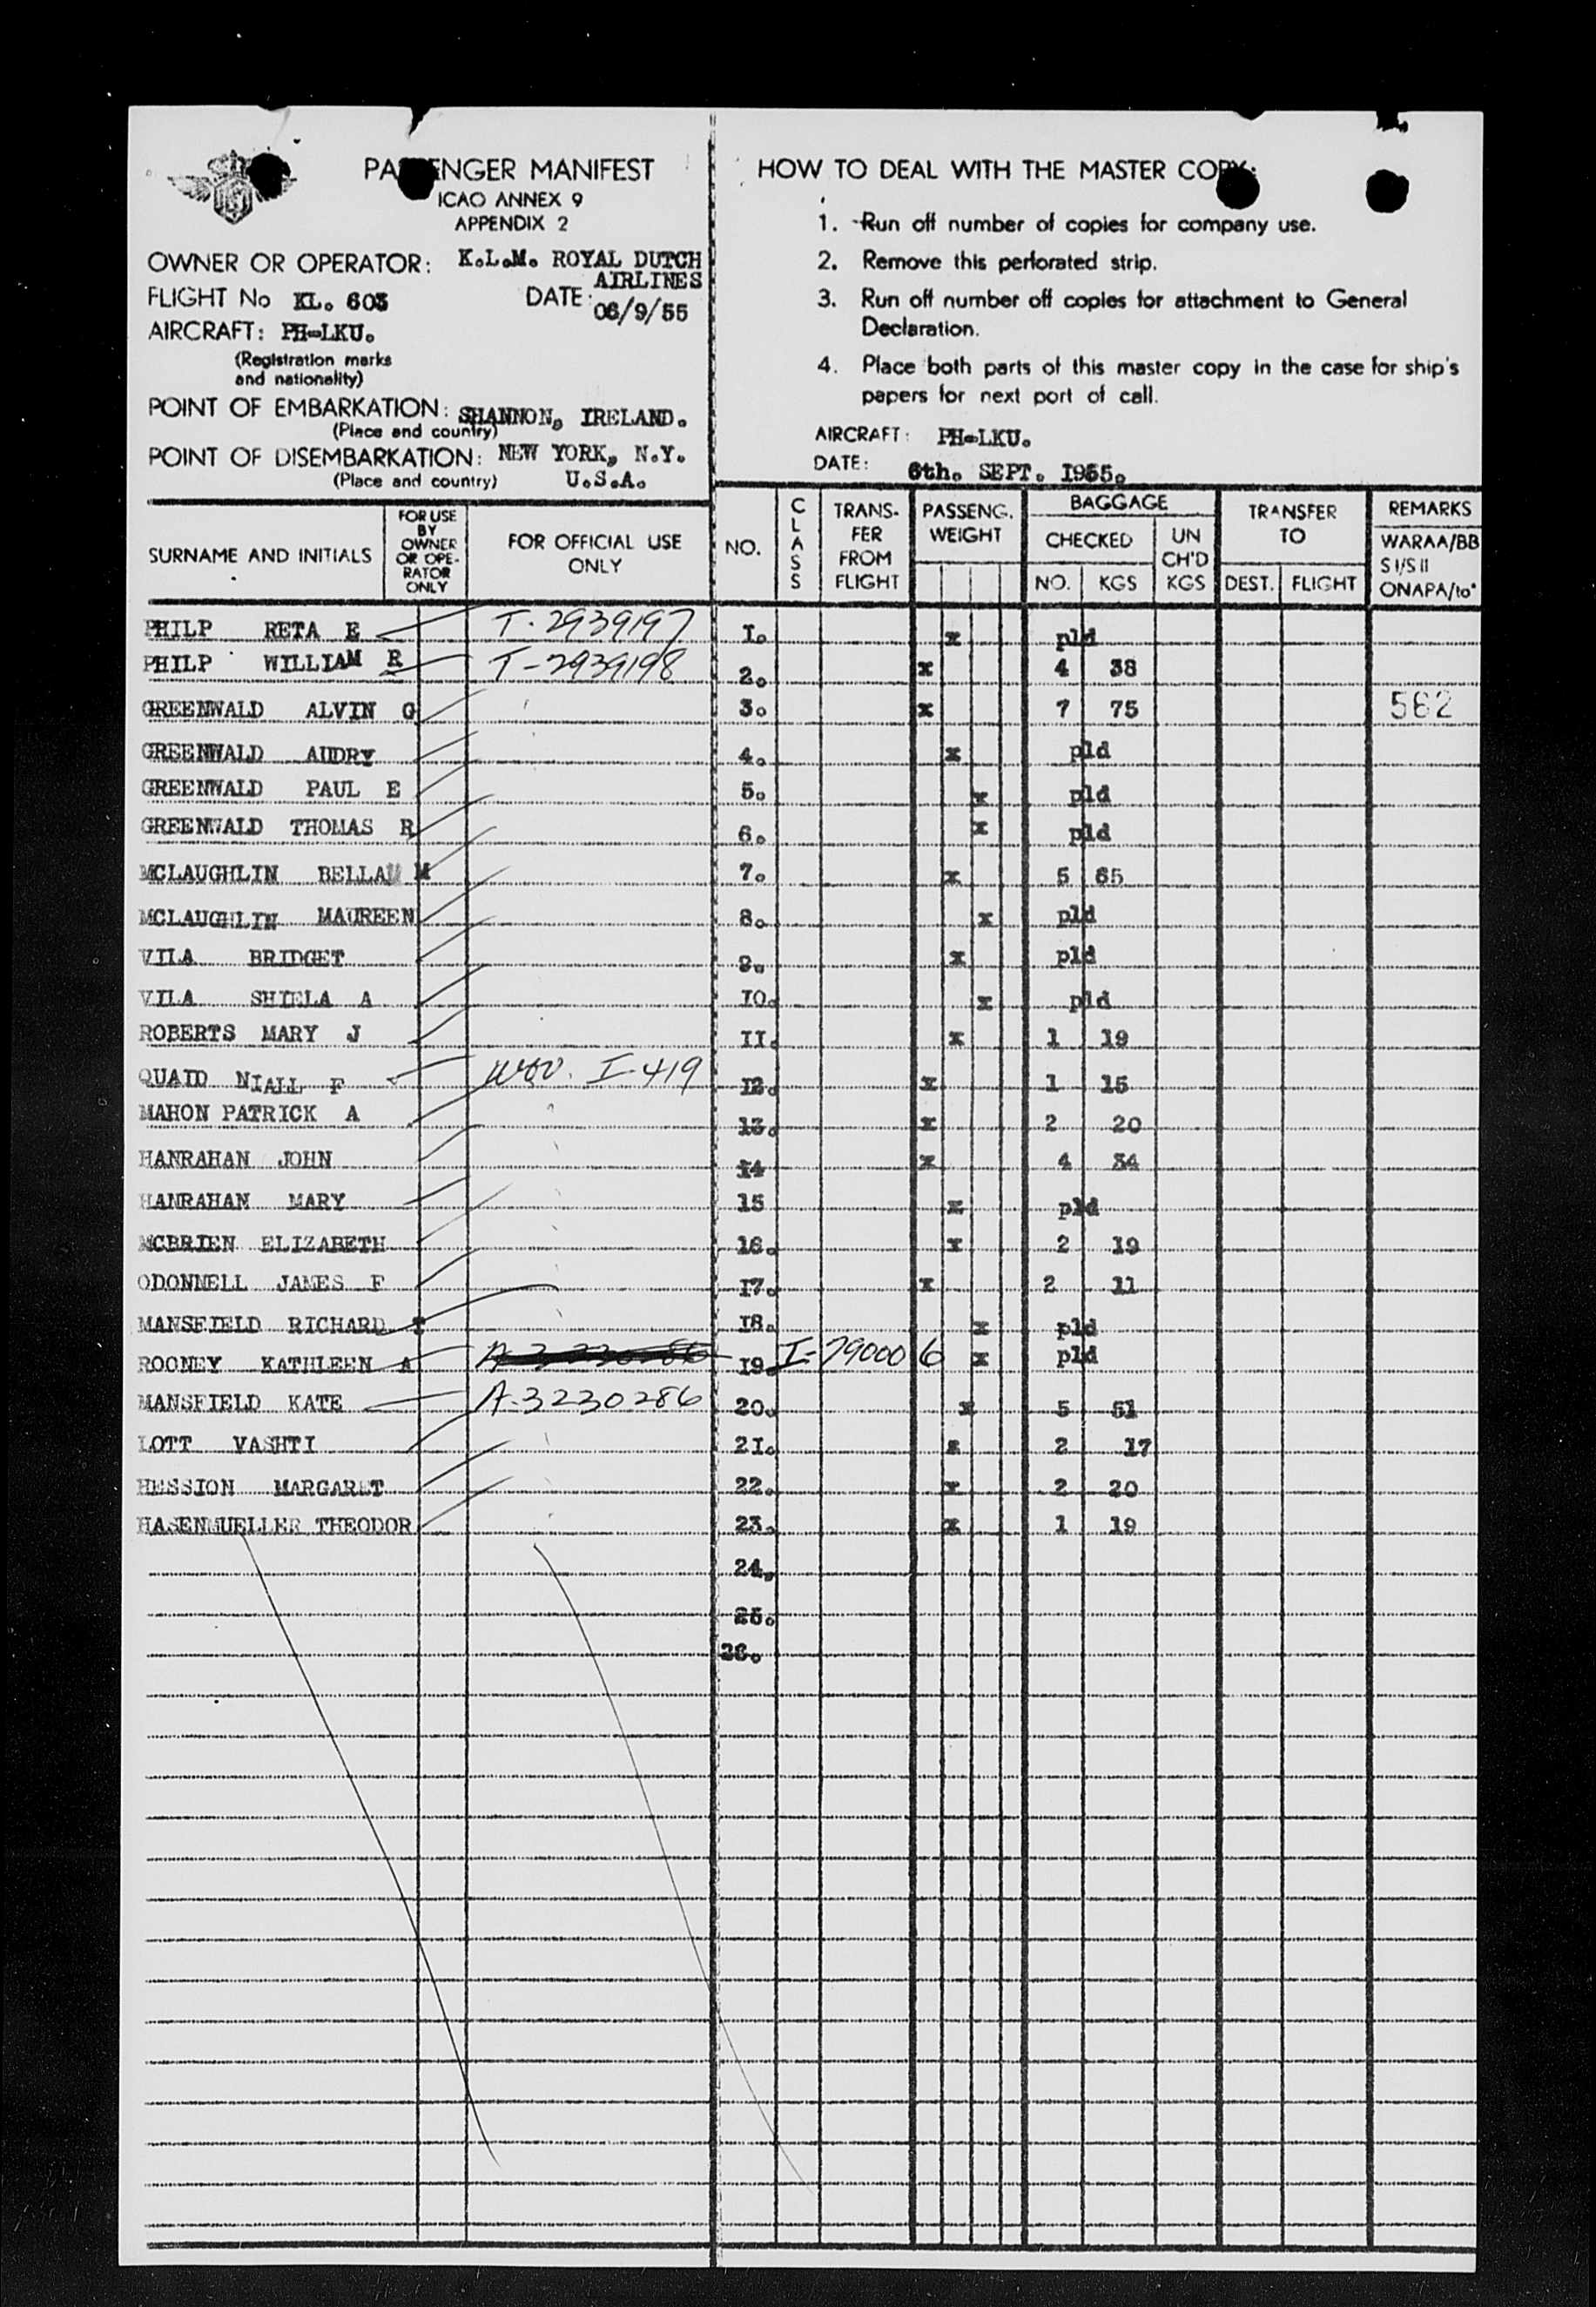 PASSENGER MANIFEST
ICAO ANNEX 9
APPENDIX 2
OWNER OR OPERATOR: K.L.M. ROYAL DUTCH
AIRLINES
FLIGHT No KL. 603 DATE: 06/9/55
AIRCRAFT: PH-LKU.
(Registration marks
and nationality)
POINT OF EMBARKATION: SHANNON, IRELAND.
(Place and country)
POINT OF DISEMBARKATION: NEW YORK, N.Y.
(Place and country) U.S.A.
HOW TO DEAL WITH THE MASTER COPY:
1. Run off number of copies for company use.
2. Remove this perforated strip.
3. Run off number off copies for attachment to General
Declaration.
4. Place both parts of this master copy in the case for ship's
papers for next port of call.
AIRCRAFT: PH-LKU.
DATE: 6th. SEPT. I955.
SURNAME AND INITIALS
FOR USE
BY
OWNER
OR OPE-
RATOR
ONLY
FOR OFFICIAL USE
ONLY
NO.
CLASS
TRANS-
FER
FROM
FLIGHT
PASSENG.
WEIGHT
BAGGAGE
CHECKED
NO. KGS
UN
CH'D
KGS
TRANSFER
TO
DEST. FLIGHT
REMARKS
WARAA/BB
SI/SII
ONAPA/to*
PHILP RETA E T-2939197 I. x pld
PHILP WILLIAM R T-2939198 2. x 4 38
GREENWALD ALVIN G 3. x 7 75 562
GREENWALD AUDRY 4. x pld
GREENWALD PAUL E 5. x pld
GREENWALD THOMAS R 6. x pld
MCLAUGHLIN BELLA M 7. x 5 65
MCLAUGHLIN MAUREEN 8. x pld
VILA BRIDGET 9. x pld
VILA SHIELA A IO. x pld
ROBERTS MARY J II. x 1 19
QUAID NIALL F I-419 12. x 1 15
MAHON PATRICK A 13. x 2 20
HANRAHAN JOHN 14 x 4 34
HANRAHAN MARY 15 x pld
MCBRIEN ELIZABETH 16. x 2 19
ODONNELL JAMES F I7. x 2 11
MANSFIELD RICHARD T I8. x pld
ROONEY KATHLEEN A I9. I-790006 x pld
MANSFIELD KATE A-3230286 20. x 5 51
LOTT VASHTI 2I. x 2 17
HESSION MARGARET 22. x 2 20
HASENMUELLER THEODOR 23. x 1 19
24.
25.
26.